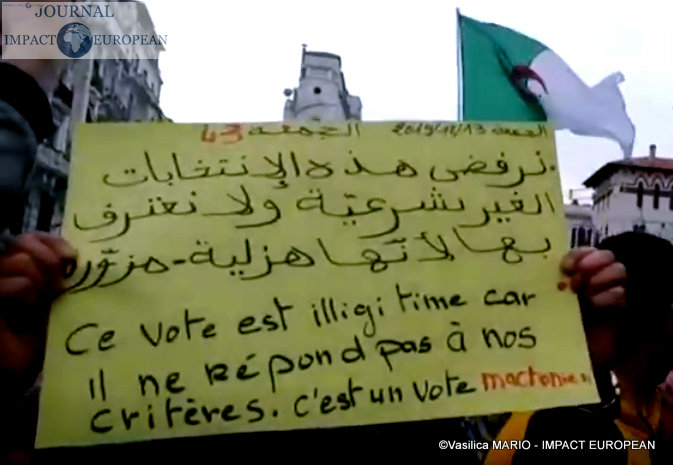 JOURNAL
IMPACT EUROPEAN
الجمعة 43 الجمعة 2019/12/13
نرفض هذه الإنتخابات
الغير شرعيّة ولا نعترف
بها لأنّها هزلية - مزوّرة
Ce vote est illigitime car
il ne répond pas à nos
critères. c'est un vote mactonie
©Vasilica MARIO - IMPACT EUROPEAN